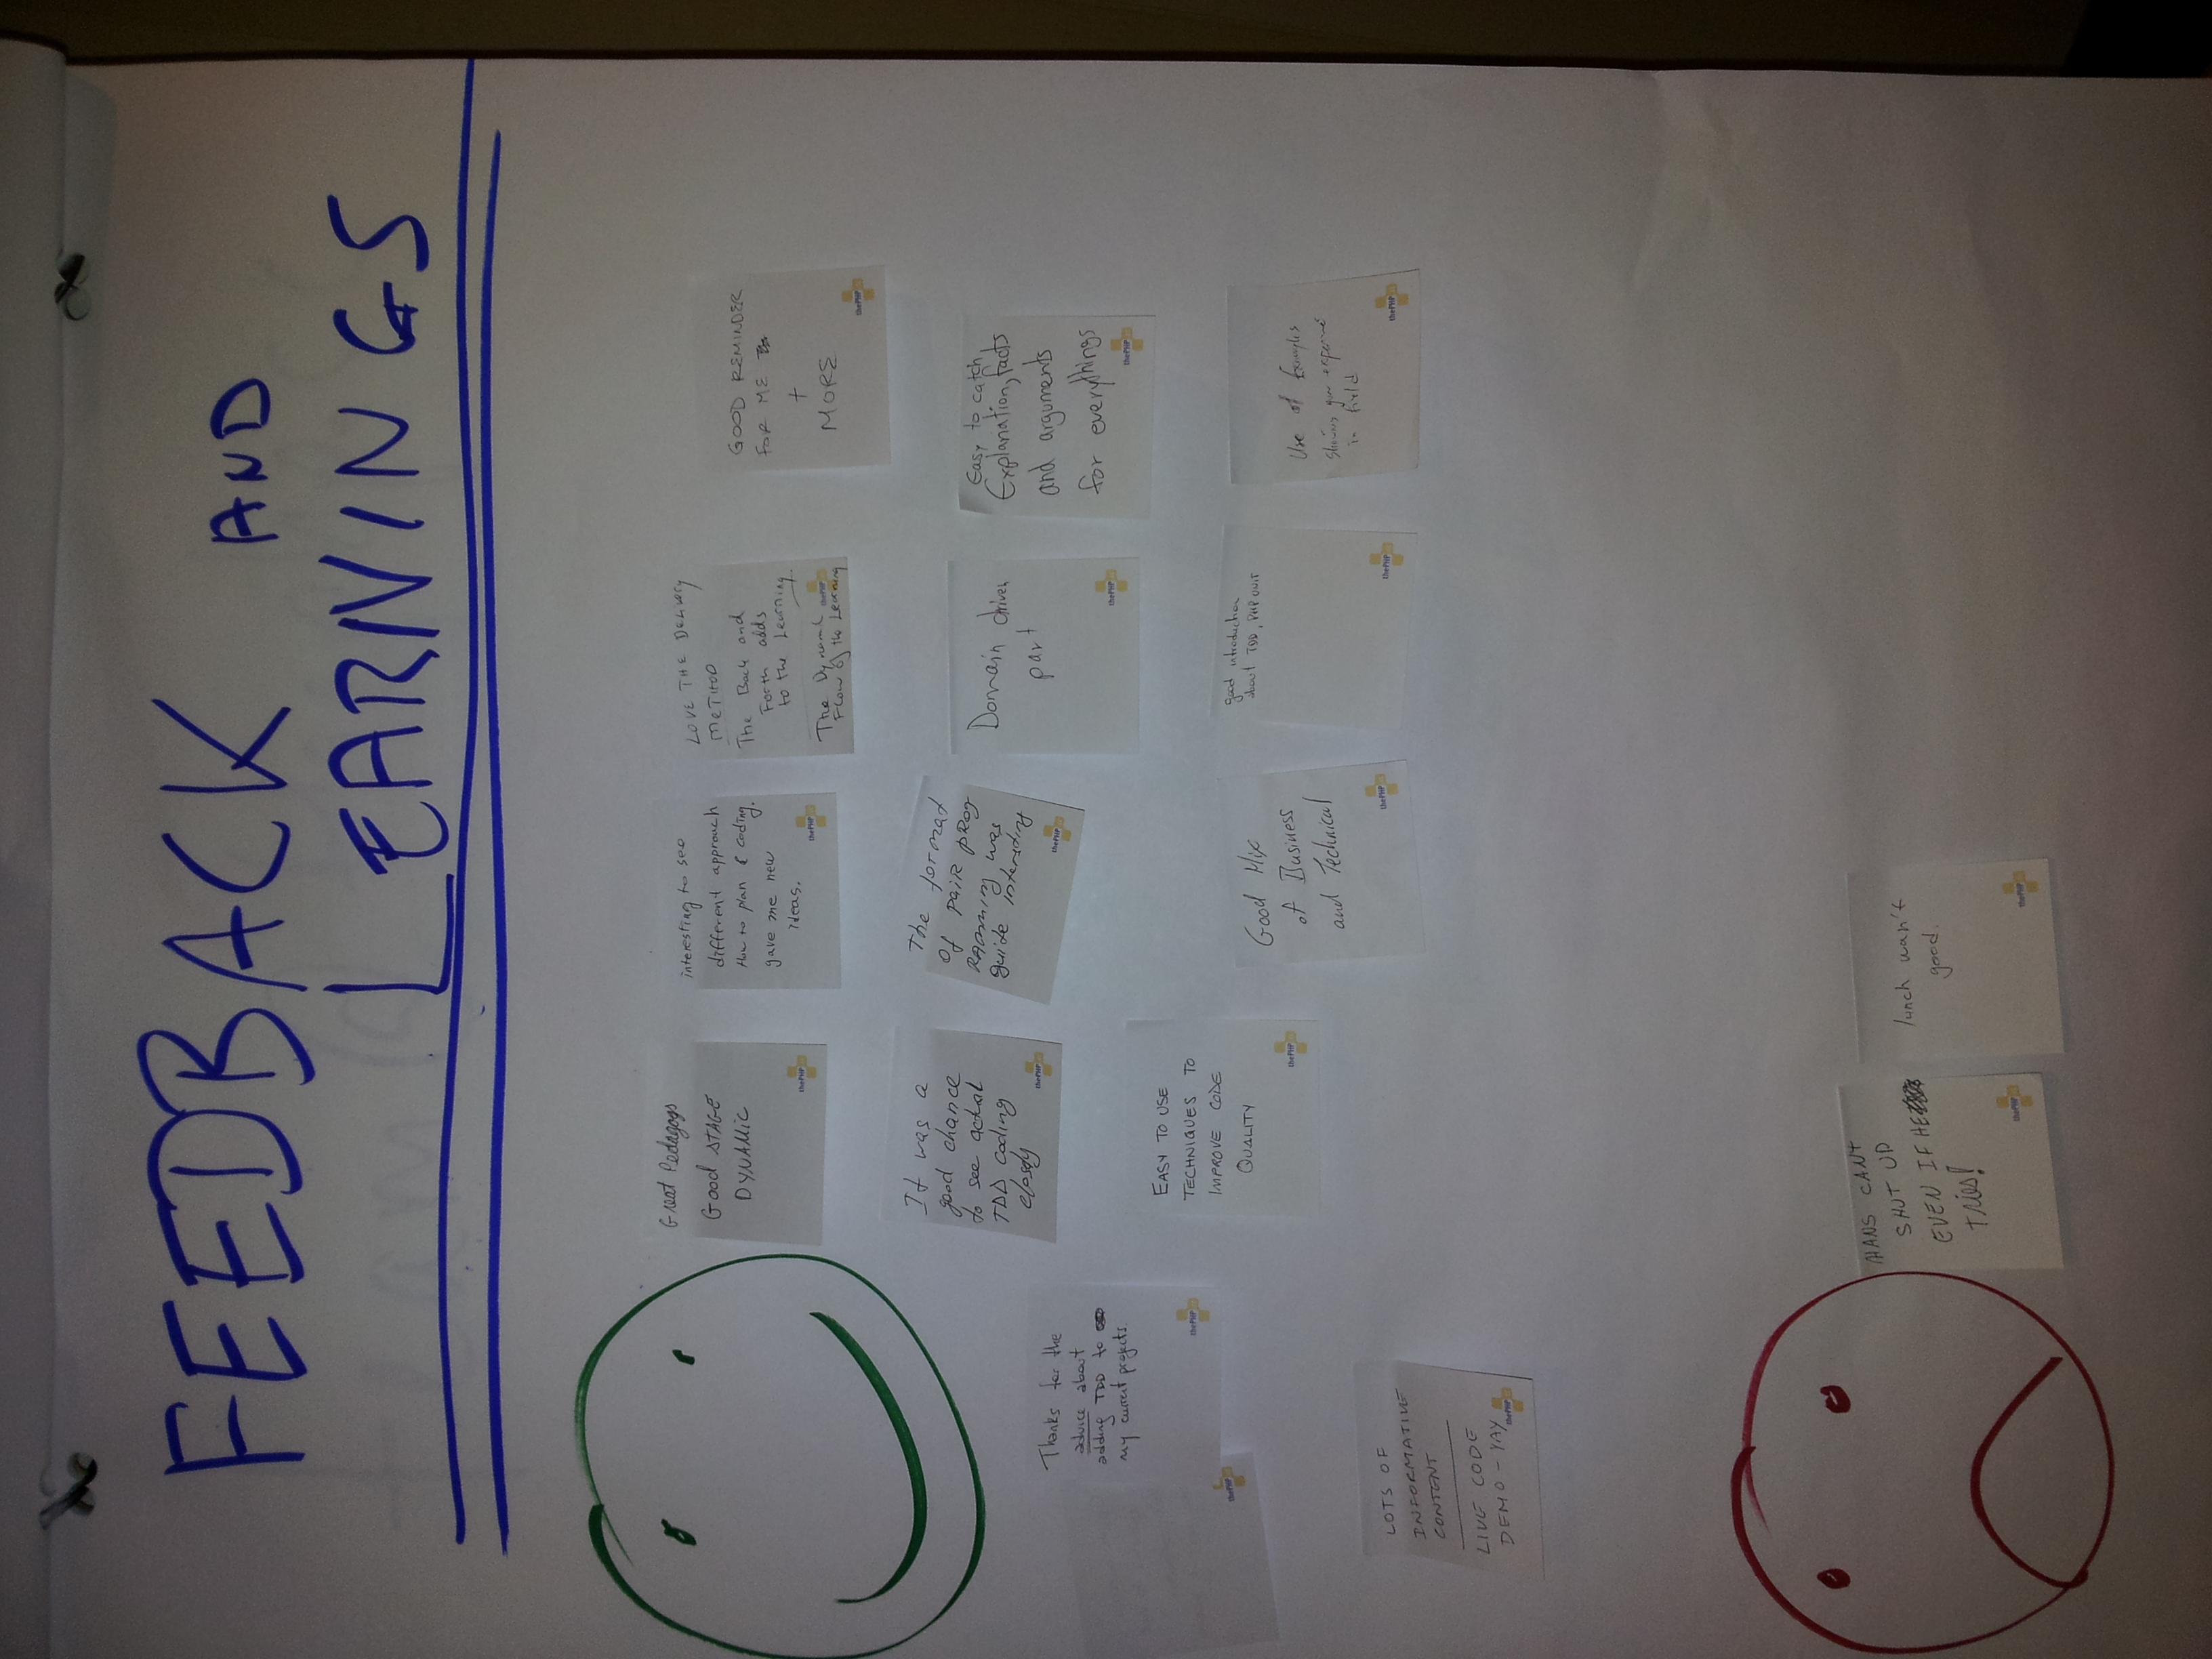 FEEDBACK AND
LEARNINGS
Great Pedagogs
Good STAGE
DYNAMIC
thePHP
interesting to see
different approach
How to plan & coding.
gave me new
ideas.
thePHP
LOVE THE DELIVERY
METHOD
The Back and
Forth adds
to the Learning
The Dynamic
Flow of the Learning
thePHP
GOOD REMINDER
FOR ME
+
MORE
thePHP
It was a
good chance
to see actual
TDD coding
closely
thePHP
The format
of PAIR PROG
RAMMING was
quite interesting
thePHP
Domain driven
part
thePHP
Easy to catch,
Explanation, facts
and arguments
for everythings
thePHP
Thanks for the
advice about
adding TDD to
my current projects.
thePHP
thePHP
EASY TO USE
TECHNIQUES TO
IMPROVE CODE
QUALITY
thePHP
Good Mix
of Business
and Technical
thePHP
good introduction
about TDD, PHP UNIT
thePHP
Use of Examples
showing your
in field
thePHP
LOTS OF
INFORMATIVE
CONTENT
LIVE CODE
DEMO - YAY
thePHP
CANT
SHUT UP
EVEN IF HE
TRIES!
thePHP
lunch wasn't
good.
thePHP